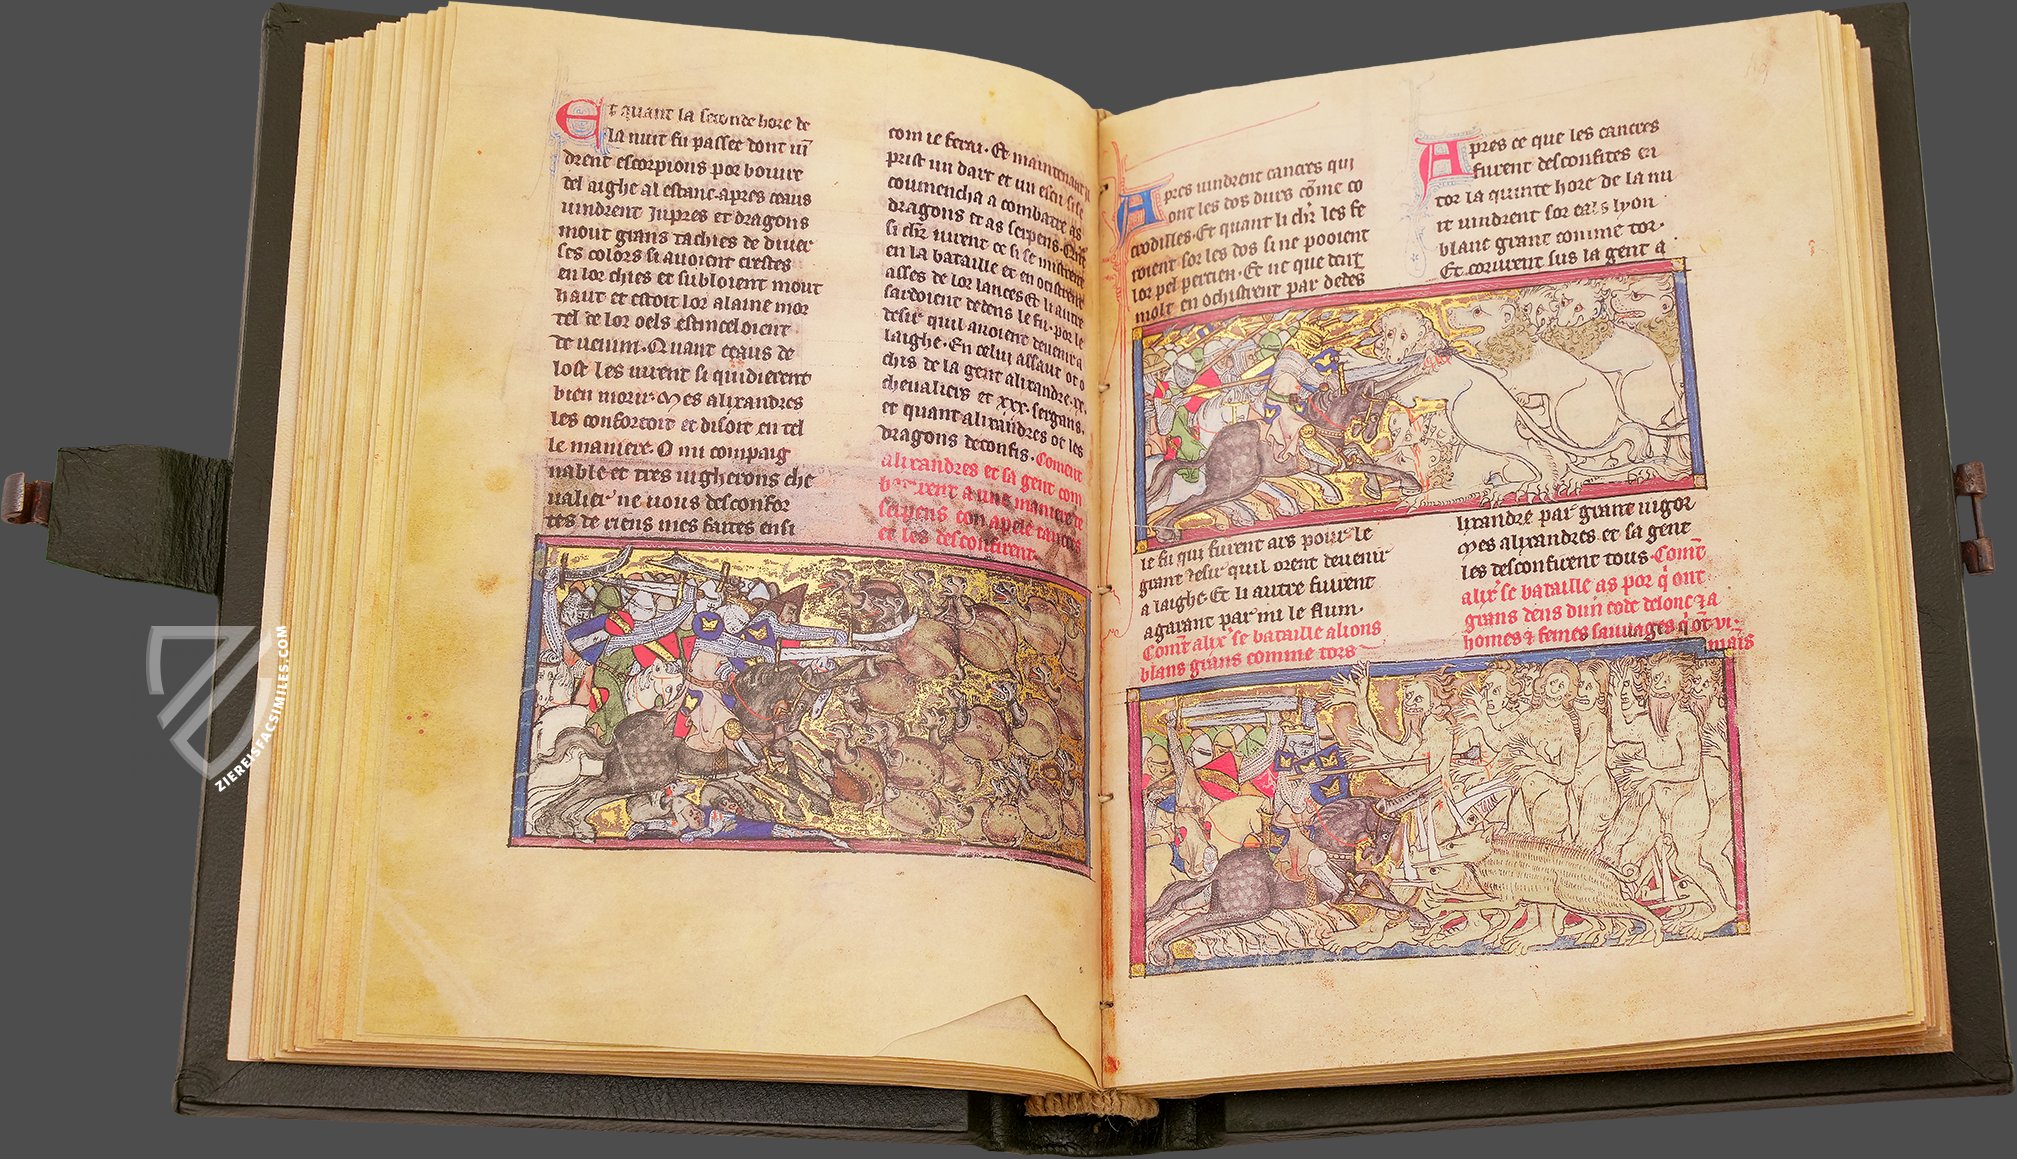 Et quant la seconde hore de
la nuit fu passee dont vi
drent escorpions por boivre
del aighe al estanc. apres ceaus
vindrent jupres et dragons
mout grans tachies de diver
ses colors si avoient crestes
en lor chies et subloient mout
haut et estoit lor alaine mor
tel de lor oels estinceloient
de venim. Quant ceaus de
lost les virent si quidierent
bien morir. Mes alixandres
les confortoit et disoit en tel
le maniere. O mi compaig
nable et tres vigherous che
valier ne vous desconfor
tes de riens mes faites ensi
com ie ferai. Et maintenant
prist un dart et un escu si se
coumencha a combatre as
dragons et as serpens. Quant
si chr virent ce si se mistrent
en la bataille et en ocistrent
asses de lor lances Et li autre
sardoient dedens le fu. por le
desir quil avoient devenir a
laighe. En celui assaut ot o
chis de la gent alixandre. xx.
chevaliers et xxx. sergans.
et quant alixandres ot les
dragons deconfis. Coment
alixandres et sa gent com
batirent a une maniere de
serpens con apele cancres
et les desconfirent
Apres vindrent cancres qui
ont les dos durs cõme co
crodilles. Et quant li chr les fe
roient sor les dos si ne pooient
lor pel percier. Et ne que dent
molt en ochistrent par dedes
le fu qui furent ars pour le
grant desir quil orent devenir
a laighe. Et li autre fuirent
agarant par mi le flum.
Comt alix' se bataille a lions
blans grans comme tors
Apres ce que les cancres
furent desconfites en
tor la quinte hore de la nu
it vindrent sor eals lyon
blanc grant comme tor.
Et corurent sus la gent a
lixandre par grant vigor
Mes alixandres et sa gent
les desconfirent tous. Comt
alix' se bataille as por q ont
grans dens dun code de lonc ⁊ a
homes ⁊ femes sauvages q ot. vi.
mais
ZIEREISFACSIMILES.COM